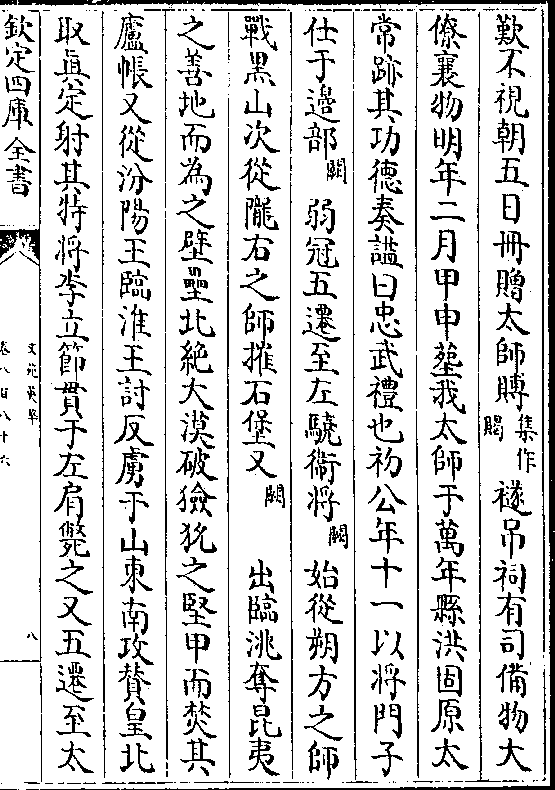 歎不視朝五日冊贈太師賻集作賵禭吊祠有司備物大
僚襄物明年二月甲申塟我太師于萬年縣洪固原太
常跡其功德奏諡曰忠武禮也初公年十一以將門子
仕于邉部闕弱冠五遷至左驍衞將闕始從朔方之師
戰黒山次從隴右之師摧石堡又闕出臨洮奪昆夷
之善地而為之壁壘北絶大漠破獫狁之堅甲而焚其
廬帳又從汾陽王臨淮王討反虜于山東南攻賛皇北
取眞定射其特將李立節貫于左肩斃之又五遷至太
欽定四庫全書
文苑英華
卷八百八十六
八